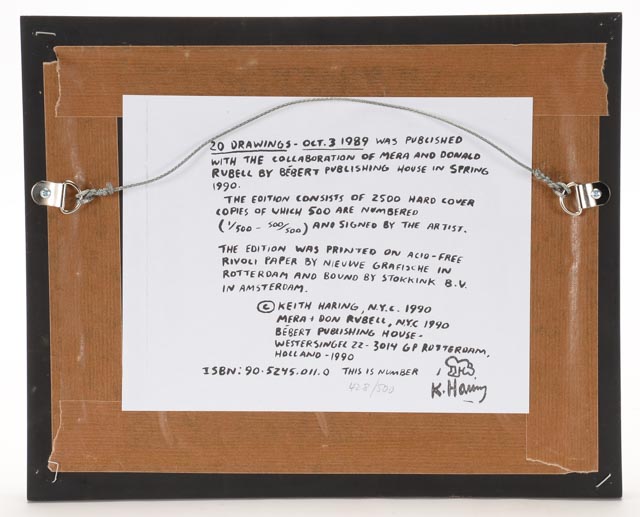 20 DRAWINGS - OCT. 3 1989 WAS PUBLISHED
WITH THE COLLABORATION OF MERA AND DONALD
RUBELL BY BÉBERT PUBLISHING HOUSE IN SPRING
1990.
THE EDITION CONSISTS OF 2500 HARD COVER
COPIES OF WHICH 500 ARE NUMBERED
(1/500 - 500/500) AND SIGNED BY THE ARTIST.
THE EDITION WAS PRINTED ON ACID-FREE
RIVOLI PAPER BY NIEUWE GRAFISCHE IN
ROTTERDAM AND BOUND BY STOKKINK B.V.
IN AMSTERDAM.
© KEITH HARING, N.Y.C. 1990
MERA + DON RUBELL, NYC 1990
BÉBERT PUBLISHING HOUSE -
WESTERSINGEL 22 - 3014 GP ROTTERDAM,
HOLLAND - 1990
ISBN: 90.5245.011.0 THIS IS NUMBER
428/500
K. Haring